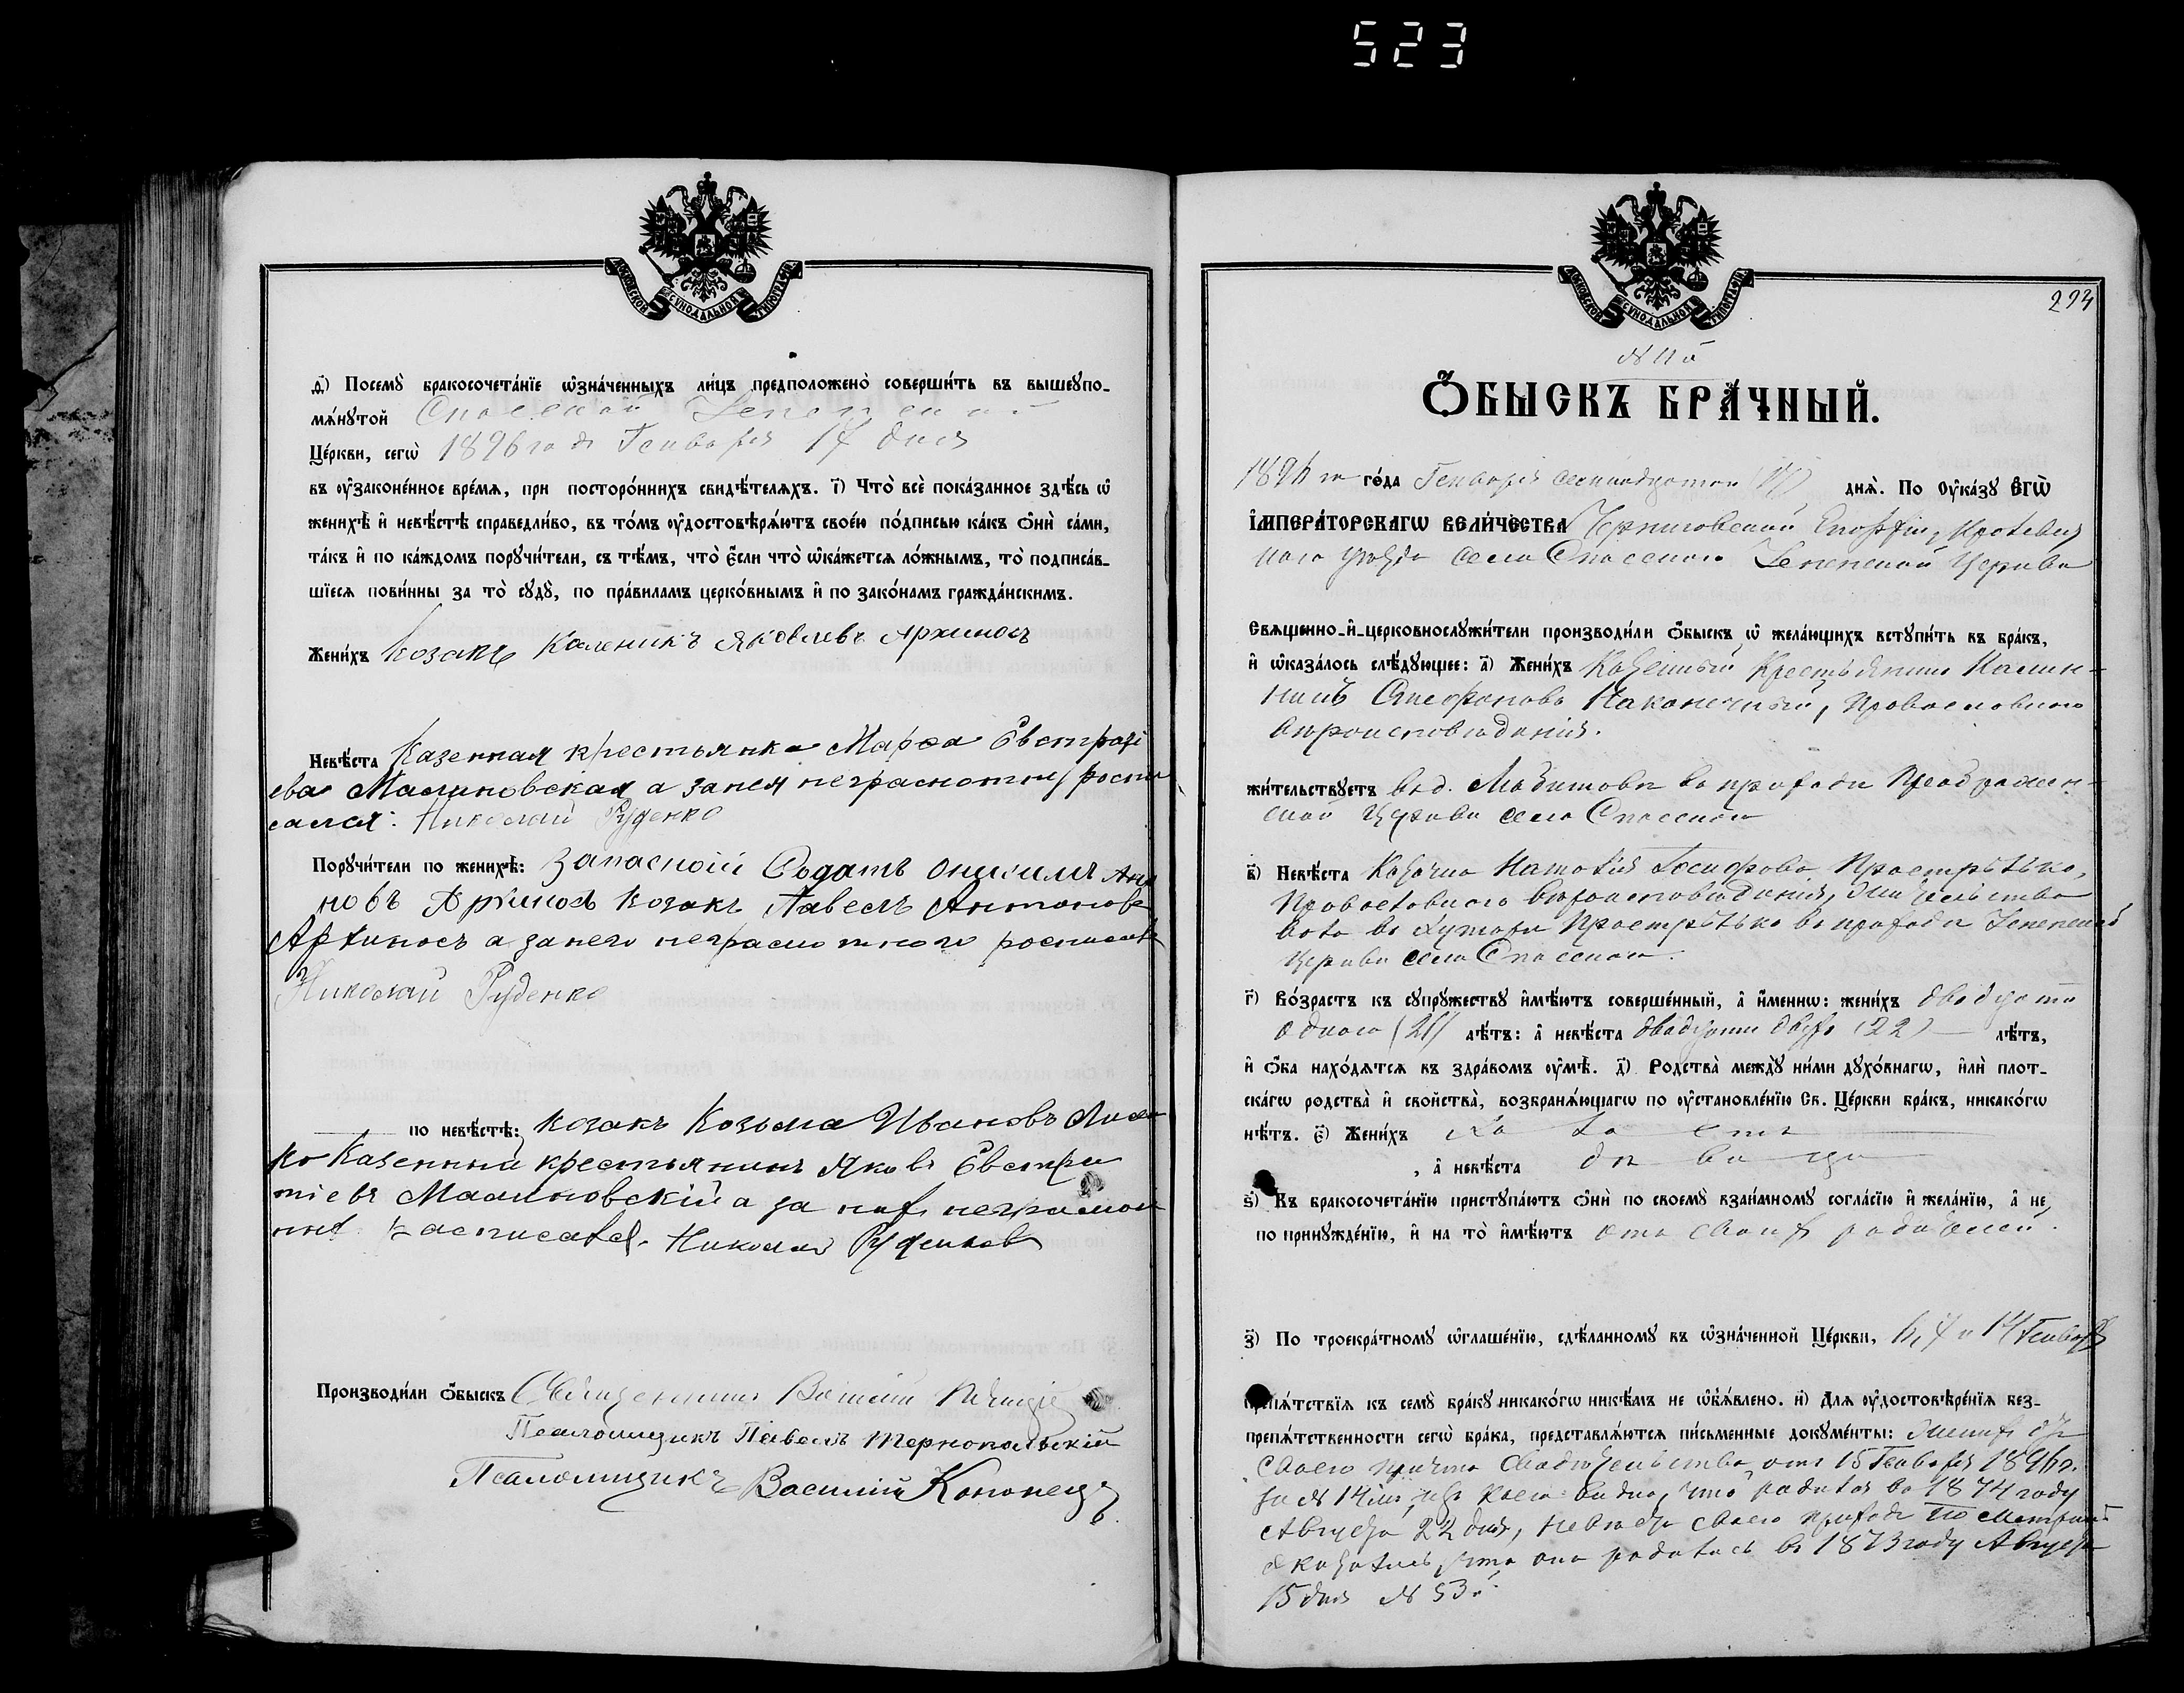 523
МОСКОВСКОЙ СѴНОДАЛЬНОЙ ТИПОГРАФІИ
д҃і) Посемꙋ̀ бракосочета́нїе ѡ҆зна́ченныхъ ли́цъ предположено̀ соверши́ть въ вышеꙋпо-
мѧ́нꙋтой Спасской
Це́ркви, сегѡ̀ 1896 года Генваря 17 дня
въ ᲂу҆законе́нное вре́мѧ, при посторо́ннихъ свидѣ́телѧхъ. і҃) Что̀ всѐ пока́занное здѣ́сь ѡ҆
женихѣ̀ и҆ невѣ́стѣ справедли́во, въ то́мъ ᲂу҆достовѣрѧ́ютъ свое́ю по́дписью ка́къ ѻ҆нѝ са́ми,
та́къ и҆ по ка́ждомъ порꙋчи́тели, съ тѣ́мъ, что̀ є҆́сли что̀ ѡ҆ка́жетсѧ ло́жнымъ, то̀ подписа́в-
шїесѧ пови́нны за то̀ сꙋдꙋ̀, по пра́виламъ церко́внымъ и҆ по зако́намъ гражда́нскимъ.
Жени́хъ Козакъ Каленикъ Яковлевъ Архиносъ
Невѣ́ста Казенная крестьянка Марѳа Евстратi
ева Малиновская а за нея неграмотну роспи
сался: Николай Руденко
Порꙋчи́тели по женихѣ̀: Запасной Содатъ
новъ Архиносъ козакъ Павелъ Антоновъ
Архиносъ а за него неграмотного
Николай Руденко
по невѣ́стѣ: козакъ Козьма Ивановъ
ко Казенный крестьянинъ Яковъ Евстра
тiевъ Малиновскiй а за них неграмот
ных Николай
Производи́ли ѻ҆́быскъ Священникъ
Псаломщикъ Павелъ Тернопольскiй
Псаломщикъ Василiй Кононецъ
МОСКОВСКОЙ СѴНОДАЛЬНОЙ ТИПОГРАФІИ
№ 11й
Ѻ҆́БЫСКЪ БРА́ЧНЫЙ.
1896 го го́да Генваря семнадцатого (17) днѧ̀. По ᲂу҆ка́зꙋ Е҆ГѠ̀
І҆МПЕРА́ТОРСКАГѠ ВЕЛИ́ЧЕСТВА Черниговской Епархiи, Кролевец
кого уѣзда села Спасского Церкви
Свѧщенно-и҆-церковнослꙋжи́тели производи́ли ѻ҆́быскъ ѡ҆ жела́ющихъ встꙋпи́ть въ бра́къ,
и҆ ѡ҆каза́лось слѣ́дꙋющее: а҃) Жени́хъ Казенный Крестьянинъ Калин-
никъ Стефановъ Наконечный, Православного
вѣроисповѣданiя.
жи́тельствꙋетъ въ д. въ приходѣ Преображен-
ской Церкви села Спасского
в҃) Невѣ́ста Козачка Наталiя Iосифова Прострѣлько,
Православного вѣроисповѣданiя, жительство
вала въ хуторѣ Прострѣлько въ приходѣ
Церкви села Спасского.
г҃) Во́зрастъ къ сꙋпрꙋ́жествꙋ и҆мѣ́ютъ соверше́нный, а҆ и҆́меннѡ: жени́хъ двадцати
одного (21) лѣ́тъ: а҆ невѣ́ста двадцати двухъ (22) лѣ́тъ,
и҆ ѻ҆́ба нахо́дѧтсѧ въ здра́вомъ ᲂу҆мѣ̀. д҃) Родства̀ междꙋ̀ ни́ми дꙋхо́внагѡ, и҆лѝ плот-
ска́гѡ родства̀ и҆ сво́йства̀, возбранѧ́ющагѡ по ᲂу҆становле́нїю Св. Це́ркви бра́къ, никако́гѡ
нѣ́тъ. є҃) Жени́хъ холостъ
, а҆ невѣ́ста дѣвица
ѕ҃) Къ бракосочета́нїю пристꙋпа́ютъ ѻ҆нѝ по своемꙋ̀ взаи́мномꙋ согла́сїю и҆ жела́нїю, а҆ не
по принꙋжде́нїю, и҆ на то̀ и҆мѣ́ютъ отъ своихъ родителей.
з҃) По троекра́тномꙋ ѡ҆глаше́нїю, сдѣ́ланномꙋ въ ѡ҆зна́ченной Це́ркви, 6, 7 и 14 Генваря
препѧ́тствїѧ къ семꙋ̀ бра́кꙋ никако́гѡ никѣ́мъ не ѡ҆б̾ѧ́влено. и҃) Длѧ ᲂу҆достовѣре́нїѧ без-
препѧ́тственности сегѡ̀ бра́ка, представлѧ́ютсѧ пи́сьменные докꙋме́нты: Женихъ
своего причта Свидѣтельство отъ 15 Генваря 1896 г.
за № 14 изъ коего видно, что родился въ 1874 году
Августа 22 дня, Невѣста своего прихода По Метрикѣ
оказалось, что она родилась въ 1873 году Августа
15 дня № 53й.